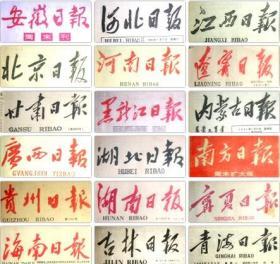 安徽日报
周末刊
河北日报
HEBEI RIBAO
江西日报
JIANGXI RIBAO
北京日报
河南日报
HENAN RIBAO
辽宁日报
LIAONING RIBAO
甘肃日报
GANSU RIBAO
黑龙江日报
内蒙古日报
廣西日报
GUANGXI RIBAO
湖北日报
HUBEI RIBAO
南方日报
周末扩大版
貴州日报
GUIZHOU RIBAO
湖南日报
HUNAN RIBAO
宁夏日报
NINGXIA RIBAO
海南日报
HAINAN RIBAO
吉林日报
JILIN RIBAO
青海日报
QINGHAI RIBAO